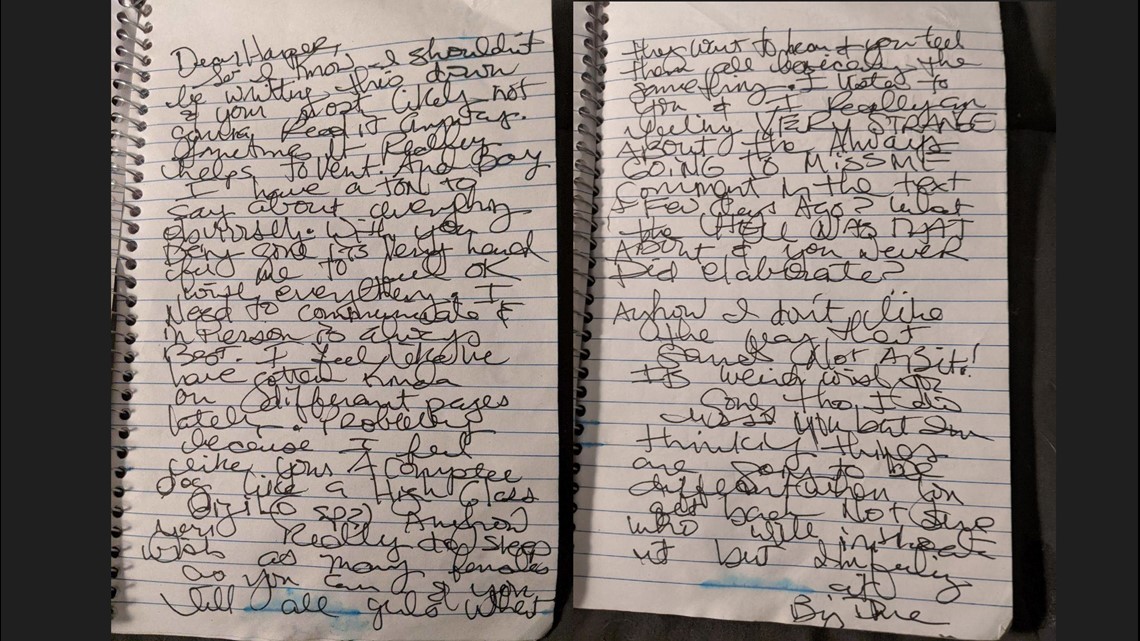 Dear Harper,
So I know I shouldn't
be writing this down
& your most likely not
gonna Read it anyway.
Sometimes it Really
helps to vent. And Boy
I have a ton to
say about everything
obviously. With you
Being gone its very hard
for me to feel OK
with everything. I
Need to communicate &
in Person is always
Best. I feel like we
have gotten Kinda
on different pages
lately. Probably
because I feel
like your A Complete
dog like a High Class
Gigilo (sp?) Anyhow
very Really to sleep
with as many females
as you can & you
tell all girls what
they want to hear & you feel
them all basically the
same thing. I listen to
you & I Really am
feeling VERY STRANGE
About the Always
GOING TO MISS ME
Comment in the text
a Few Days Ago? What
the HELL WAS THAT
About & you Never
Did elaborate?
Anyhow I don't like
the way that
Sands Not A Bit!
Its weird with you
Gone tho I do
miss you but Im
thinking things
are going to be
different when you
get back Not sure
who will instigate
it but Imfeeling
it
By